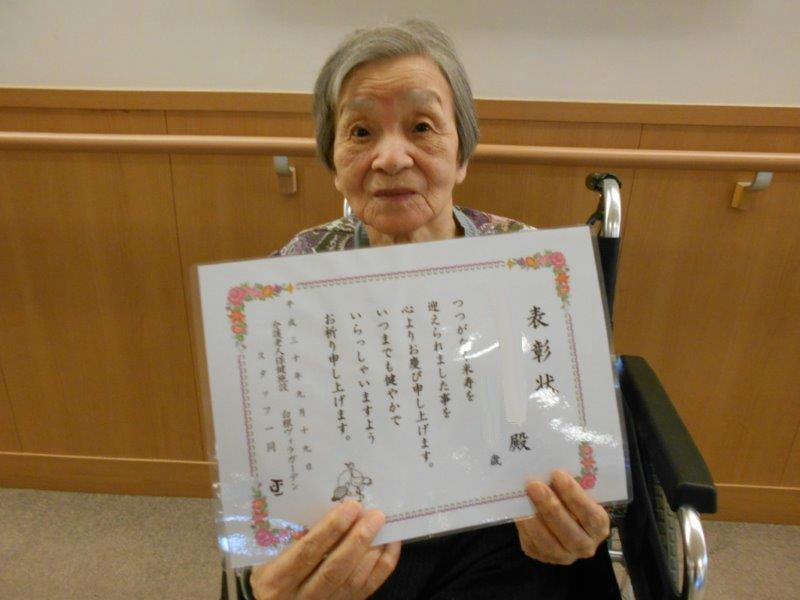 表彰状
殿
歳
つつがなく米寿を
迎えられました事を
心よりお慶び申し上げます。
いつまでも健やかで
いらっしゃいますよう
お祈り申し上げます。
平成三十年九月十九日
介護老人保健施設 白根ヴィラガーデン
スタッフ一同